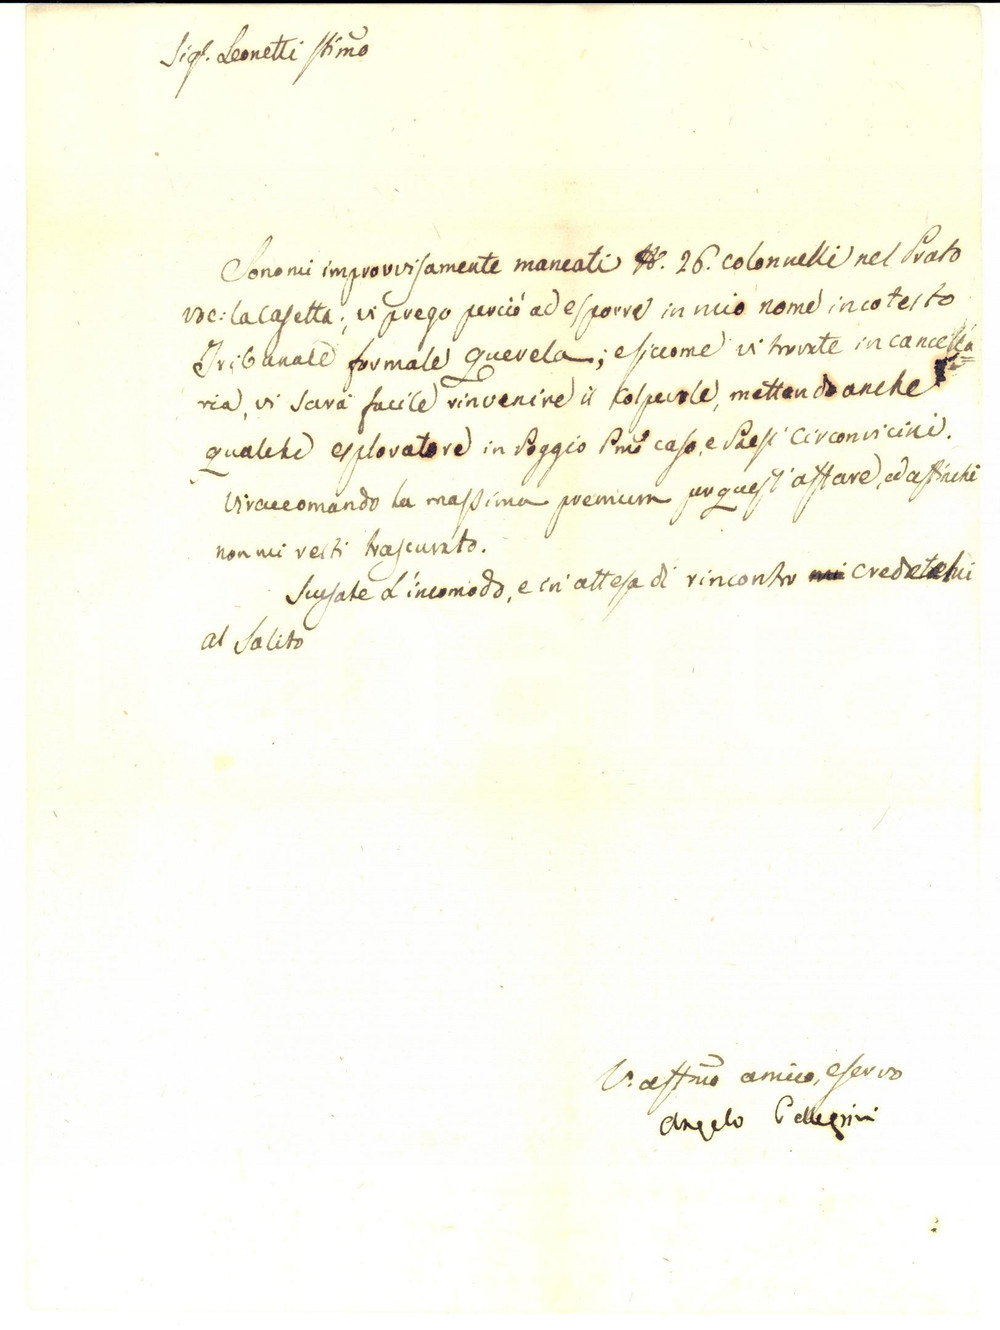 Sigr. Leonetti stimo
Sonomi improvvisamente mancati N. 26. colonnelli nel Prato
voc: la Casetta; vi prego perciò ad esporre in mio nome in cotesto
Tribunale formale Querela; e siccome vi trovate in cancella
ria, vi sarà facile rinvenire il Colpevole, mettendo anche
qualche esploratore in Poggio Pmo caso, e Paesi Circonvicini.
Vi raccomando la massima premura per quest'affare, ed affinché
non mi resti trascurato.
Scusate l'incomodo, e in attesa di rincontro credetemi
al Solito
V. affmo amico, e servo
Angelo Pellegrini